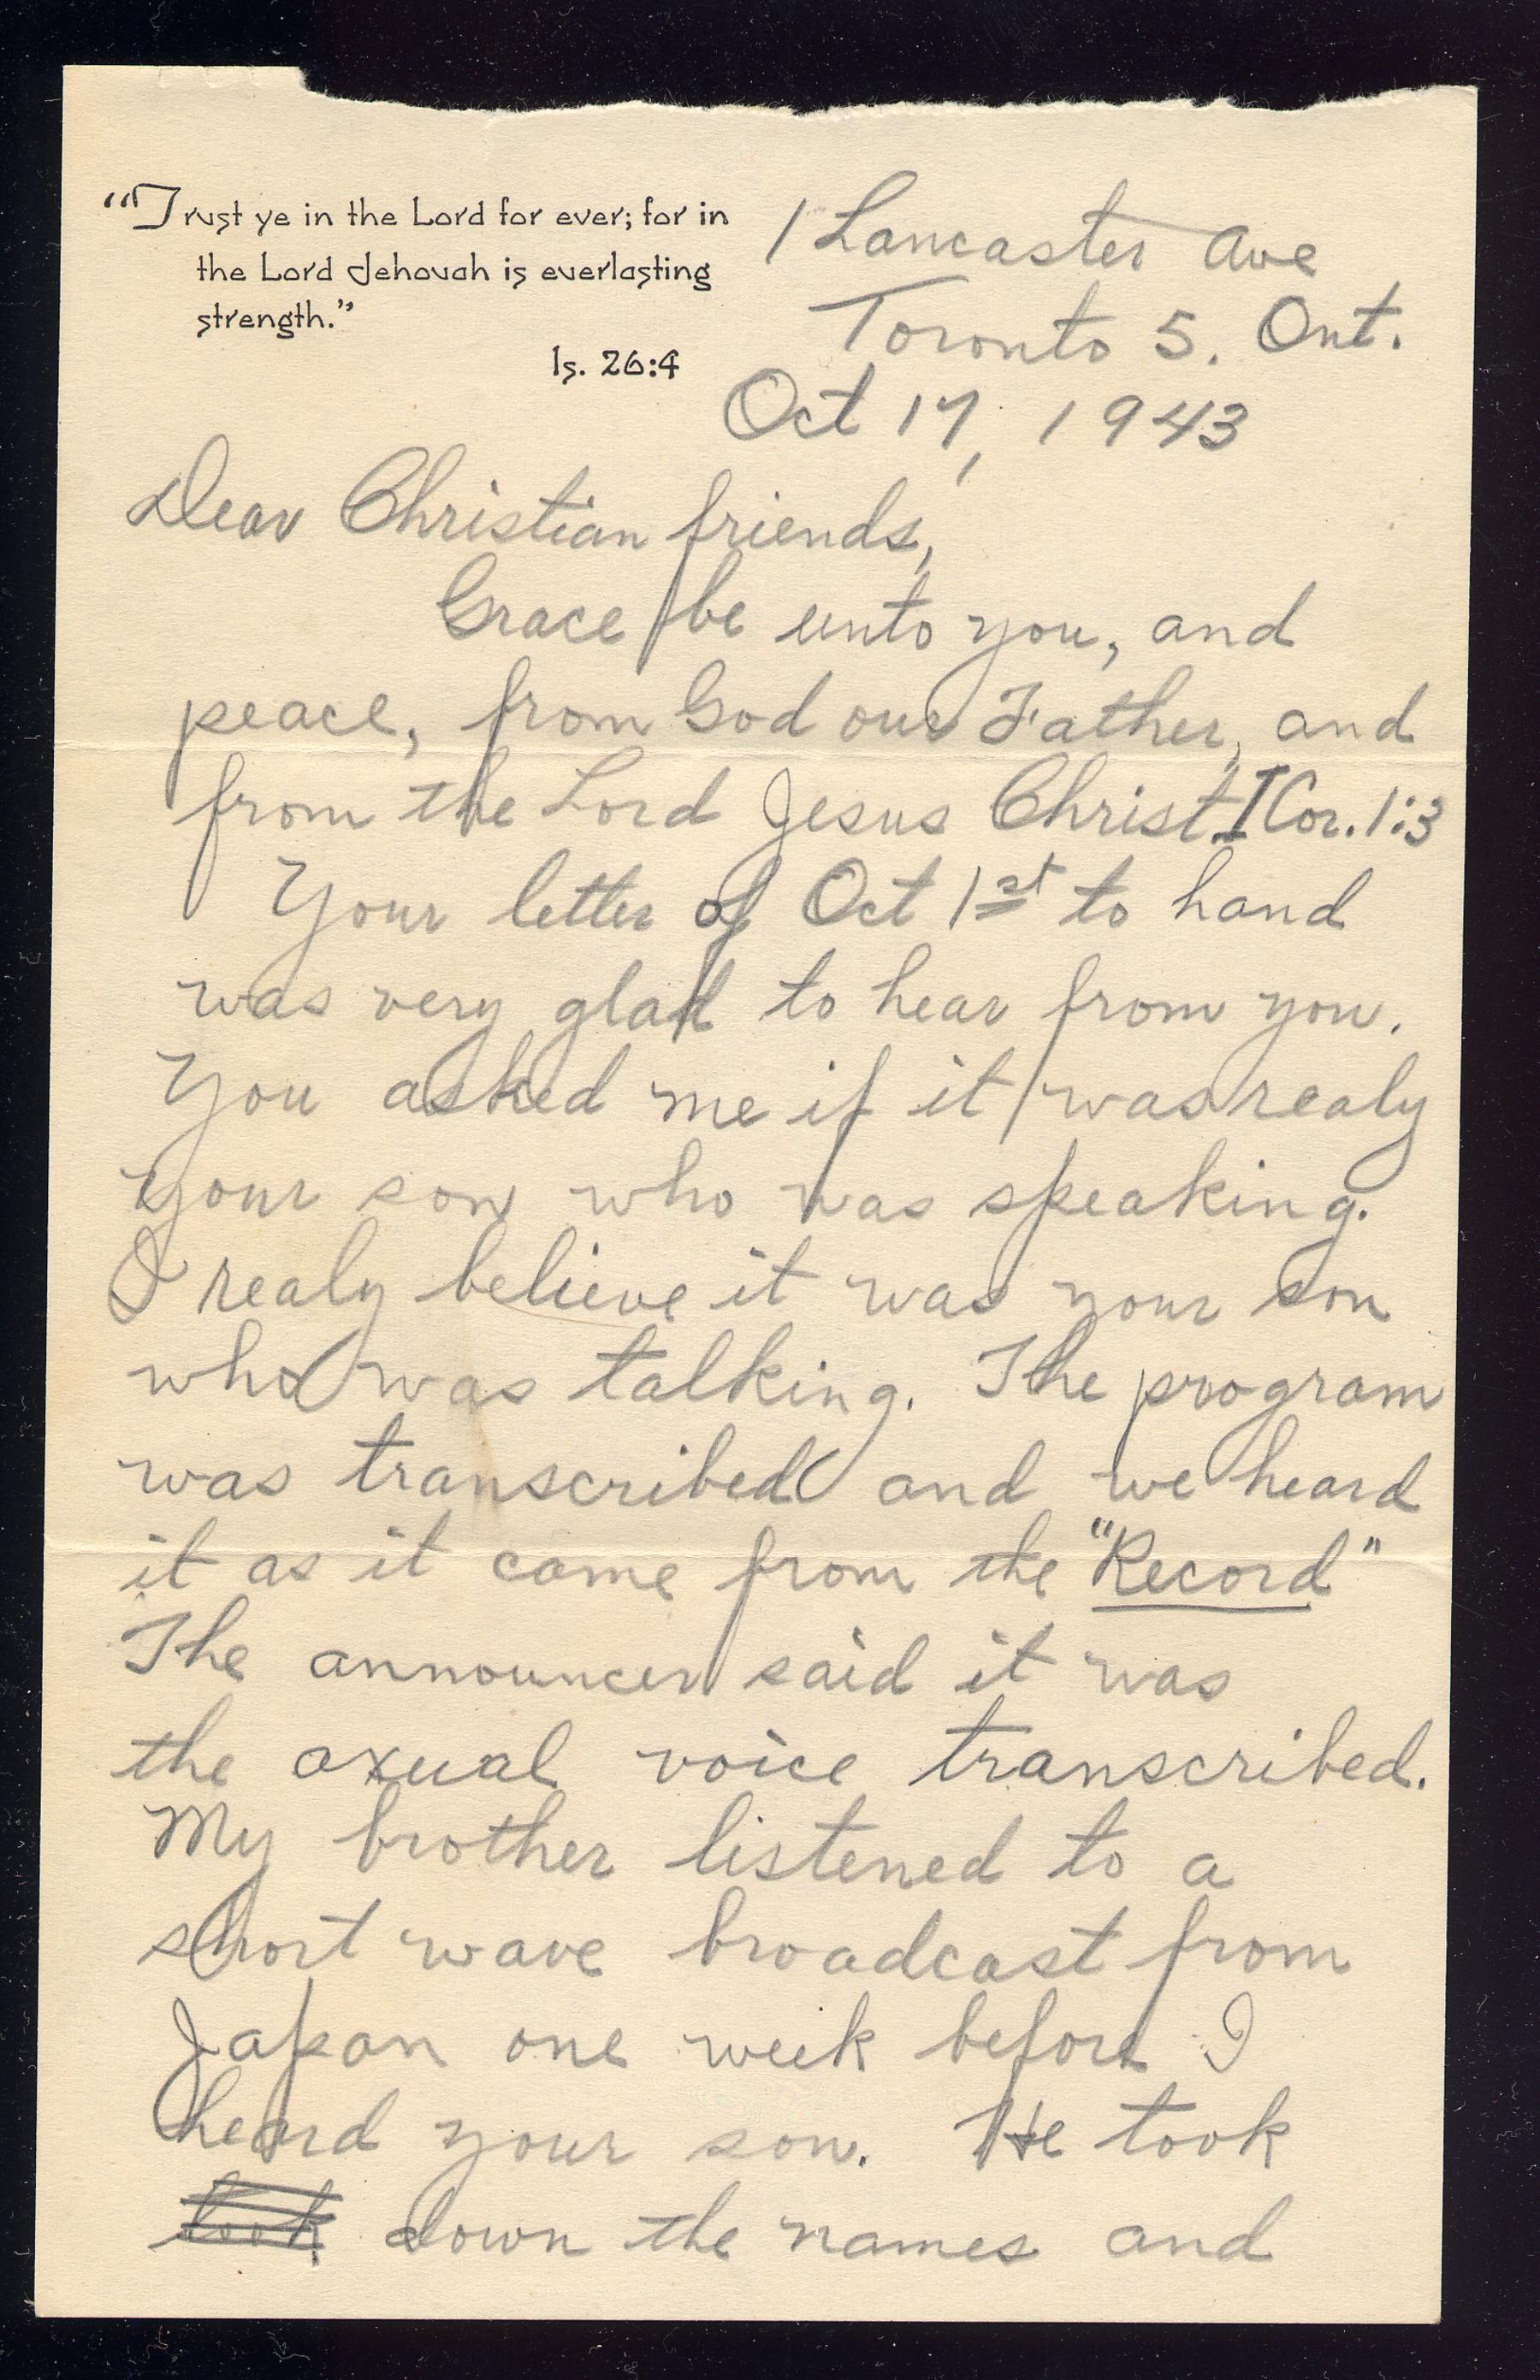 "Trust ye in the Lord for ever; for in
the Lord Jehovah is everlasting
strength."
Is. 26:4
1 Lancaster Ave
Toronto 5. Ont.
Oct 17, 1943
Dear Christian friends,
Grace be unto you, and
peace, from God our Father, and
from the Lord Jesus Christ I Cor. 1:3
Your letter of Oct 1st to hand
was very glad to hear from you.
You asked me if it was realy
your son who was speaking.
I realy believe it was your son
who was talking. The program
was transcribed and we heard
it as it come from the "Record"
The announcer said it was
the axual voice transcribed.
My brother listened to a
short wave broadcast from
Japan one week before I
heard your son. He took
took down the names and